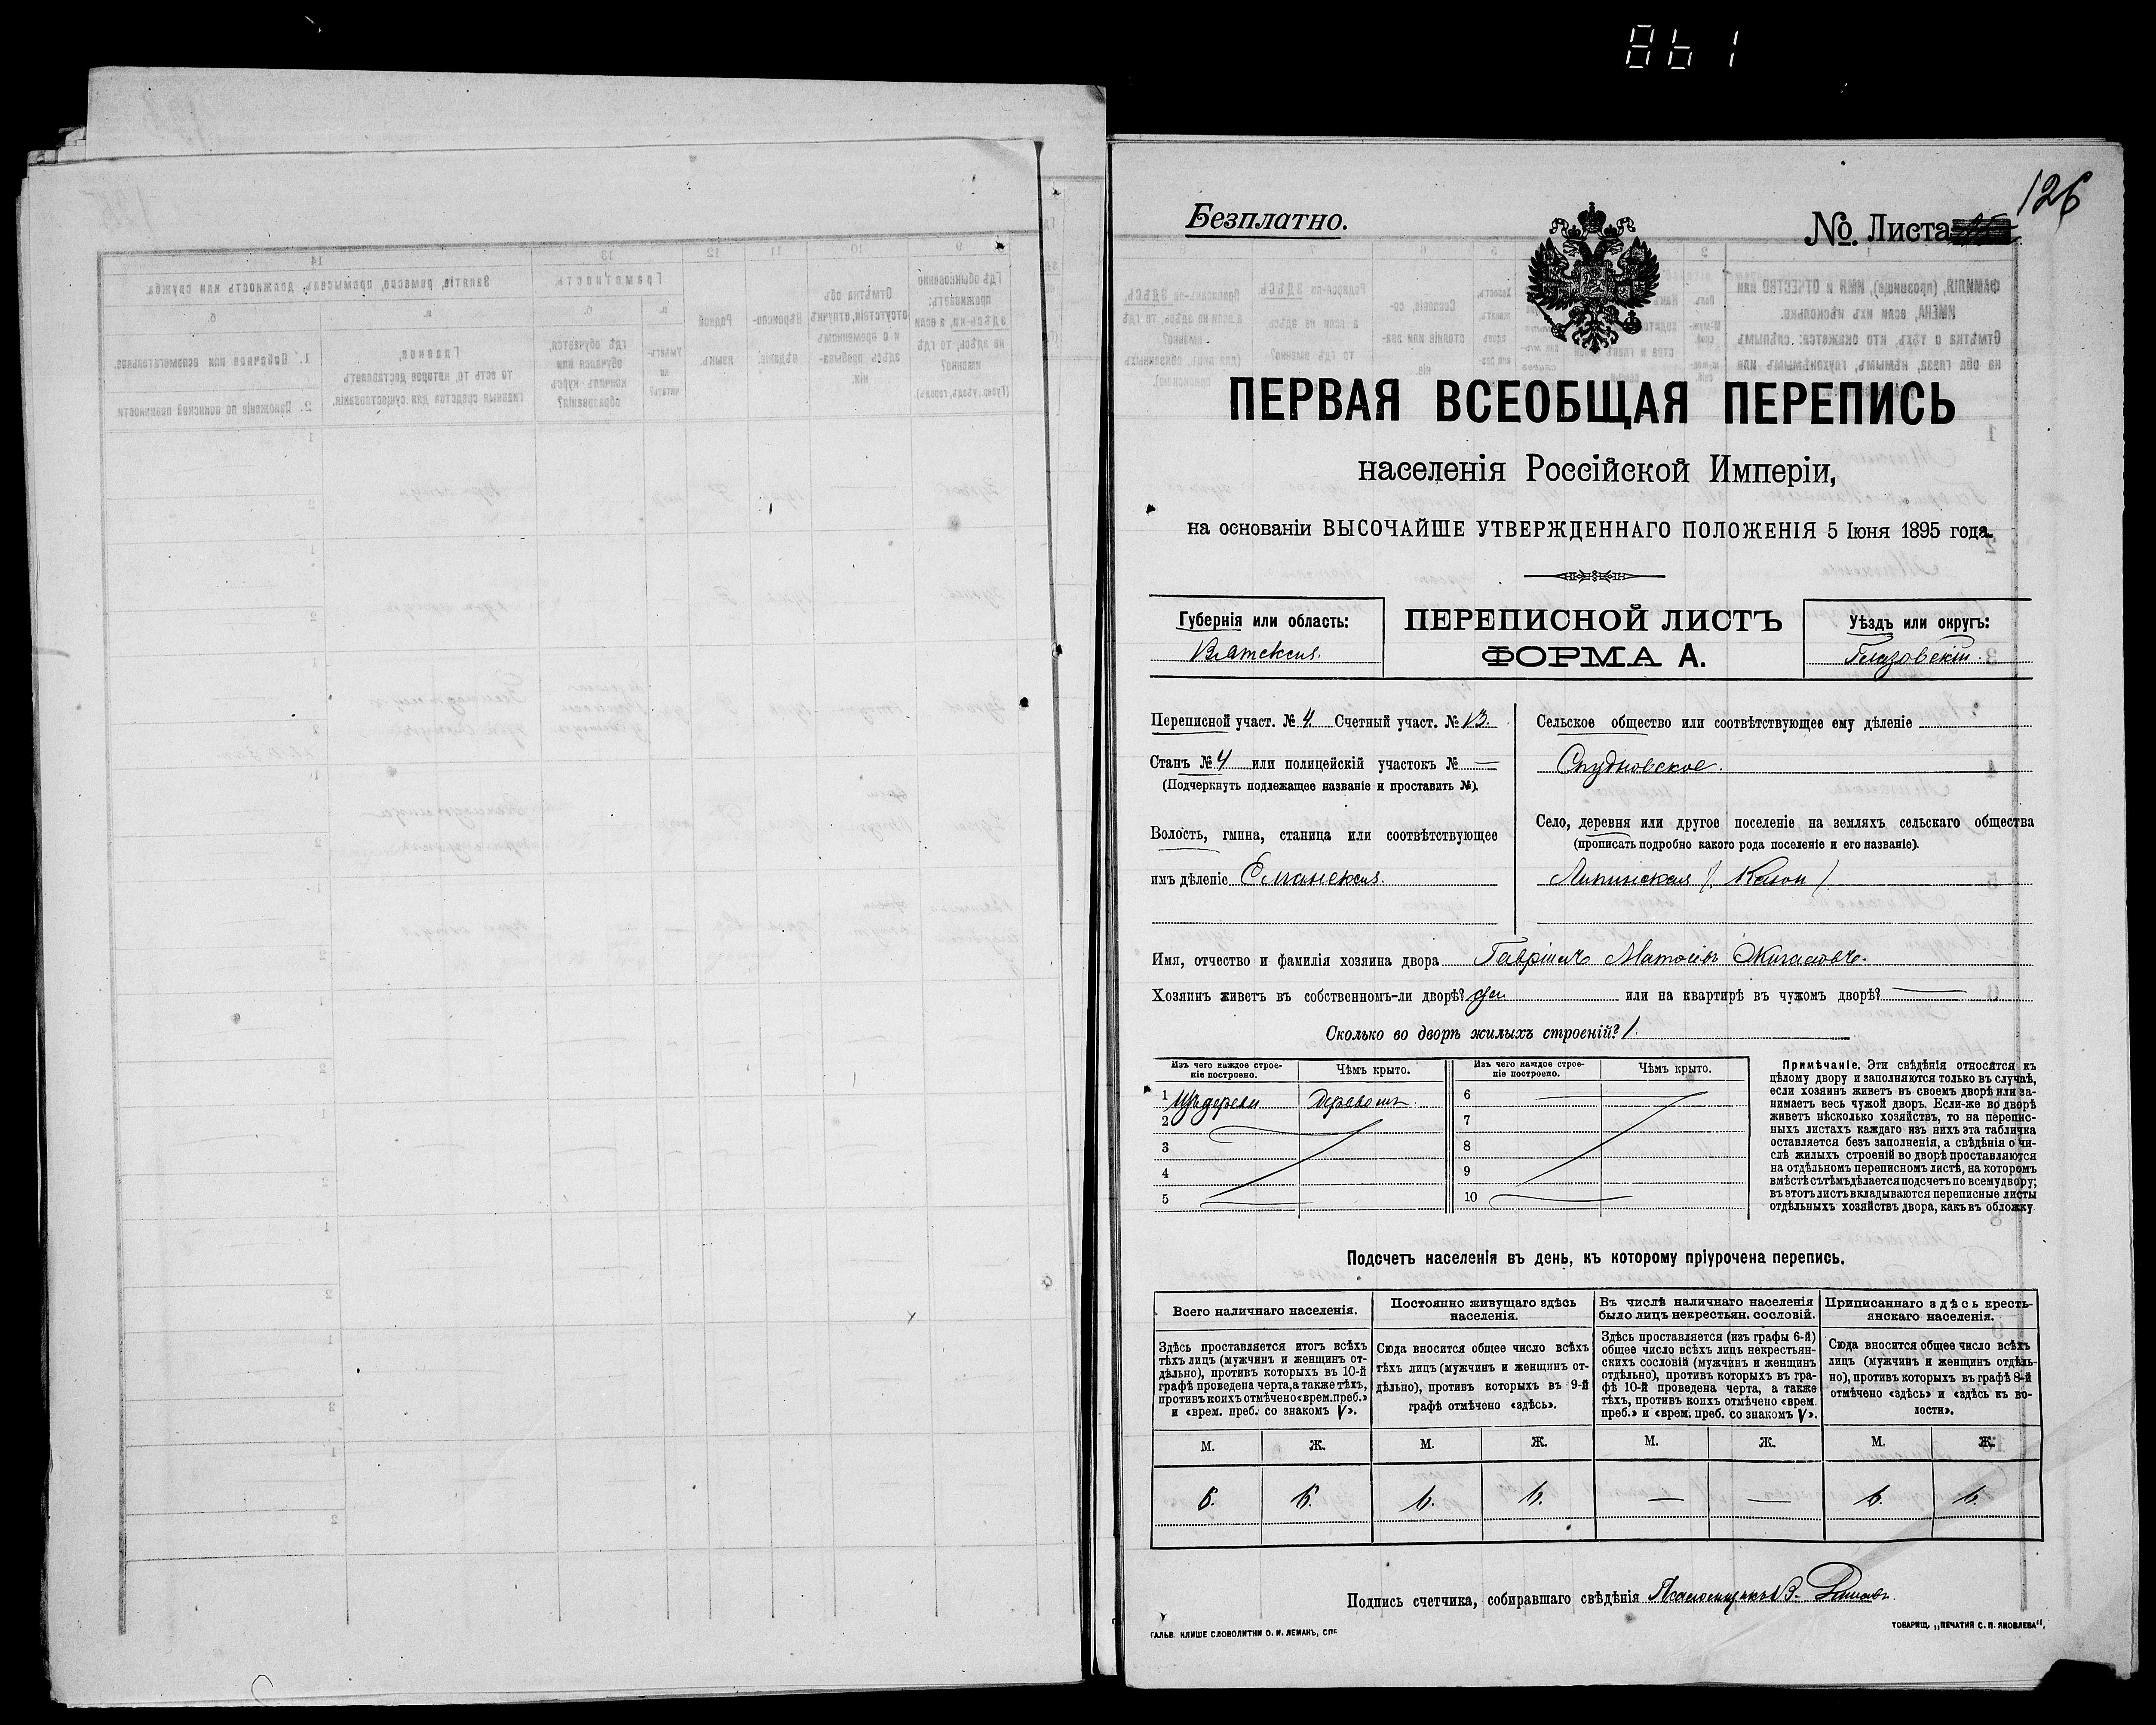 861
126
Безплатно.
№. Листа
ПЕРВАЯ ВСЕОБЩАЯ ПЕРЕПИСЬ
населенія Россійской Имперіи,
на основаніи ВЫСОЧАЙШЕ УТВЕРЖДЕННАГО ПОЛОЖЕНІЯ 5 Іюня 1895 года.
Губернія или область:
Вятская.
ПЕРЕПИСНОЙ ЛИСТЪ
ФОРМА А.
Уѣздъ или округъ:
Глазовскій.
Переписной участ. № 4. Счетный участ. № 13.
Станъ № 4 или полицейскій участокъ № —
(Подчеркнуть подлежащее названіе и проставить №).
Волость, гмина, станица или соотвѣтствующее
имъ дѣленіе Еланская.
Сельское общество или соотвѣтствующее ему дѣленіе
Село, деревня или другое поселеніе на земляхъ сельскаго общества
(прописать подробно какого рода поселеніе и его названіе).
Имя, отчество и фамилія хозяина двора Гавріилъ
Хозяинъ живетъ въ собственномъ-ли дворѣ? да. или на квартирѣ въ чужомъ дворѣ? —
Сколько во дворѣ жилыхъ строеній? 1.
Изъ чего каждое строе-
ніе построено.
Чѣмъ крыто.
1 Изъ дерева Деревомъ.
2
3
4
5
Изъ чего каждое строе-
ніе построено.
Чѣмъ крыто.
6
7
8
9
10
Примѣчаніе. Эти свѣдѣнія относятся къ
цѣлому двору и заполняются только въ случаѣ,
если хозяинъ живетъ въ своемъ дворѣ или за-
нимаетъ весь чужой дворъ. Если-же во дворѣ
живетъ нѣсколько хозяйствъ, то на перепис-
ныхъ листахъ каждаго изъ нихъ эта табличка
оставляется безъ заполненія, а свѣдѣнія о чи-
слѣ жилыхъ строеній во дворѣ проставляются
на отдѣльномъ переписномъ листѣ, на которомъ
вмѣстѣ съ тѣмъ дѣлается подсчетъ по всему двору;
въ этотъ листъ вкладываются переписные листы
отдѣльныхъ хозяйствъ двора, какъ въ обложку.
Подсчетъ населенія въ день, къ которому пріурочена перепись.
Всего наличнаго населенія.
Здѣсь проставляется итогъ всѣхъ
тѣхъ лицъ (мужчинъ и женщинъ от-
дѣльно), противъ которыхъ въ 10-й
графѣ проведена черта, а также тѣхъ,
противъ коихъ отмѣчено «врем. преб.»
и «врем. преб. со знакомъ V».
Постоянно живущаго здѣсь
населенія.
Сюда вносится общее число всѣхъ
тѣхъ лицъ (мужчинъ и женщинъ от-
дѣльно), противъ которыхъ въ 9-й
графѣ отмѣчено «здѣсь».
Въ числѣ наличнаго населенія
было лицъ некрестьян. сословій.
Здѣсь проставляется (изъ графы 6-й)
общее число всѣхъ лицъ некрестьян-
скихъ сословій (мужчинъ и женщинъ
отдѣльно), противъ которыхъ въ гра-
фѣ 10-й проведена черта, а также
тѣхъ, противъ коихъ отмѣчено «врем.
преб.» и «врем. преб. со знакомъ V».
Приписаннаго здѣсь кресть-
янскаго населенія.
Сюда вносится общее число всѣхъ
лицъ (мужчинъ и женщинъ отдѣль-
но), противъ которыхъ въ графѣ 8-й
отмѣчено «здѣсь» и «здѣсь къ во-
лости».
М. Ж. М. Ж. М. Ж. М. Ж.
6. 6. 6. 6. — — 6. 6.
Подпись счетчика, собиравшаго свѣдѣнія
ГАЛЬВ. КЛИШЕ СЛОВОЛИТНИ О. И. ЛЕМАНЪ, СПБ.
ТОВАРИЩ. „ПЕЧАТНЯ С. П. ЯКОВЛЕВА“.